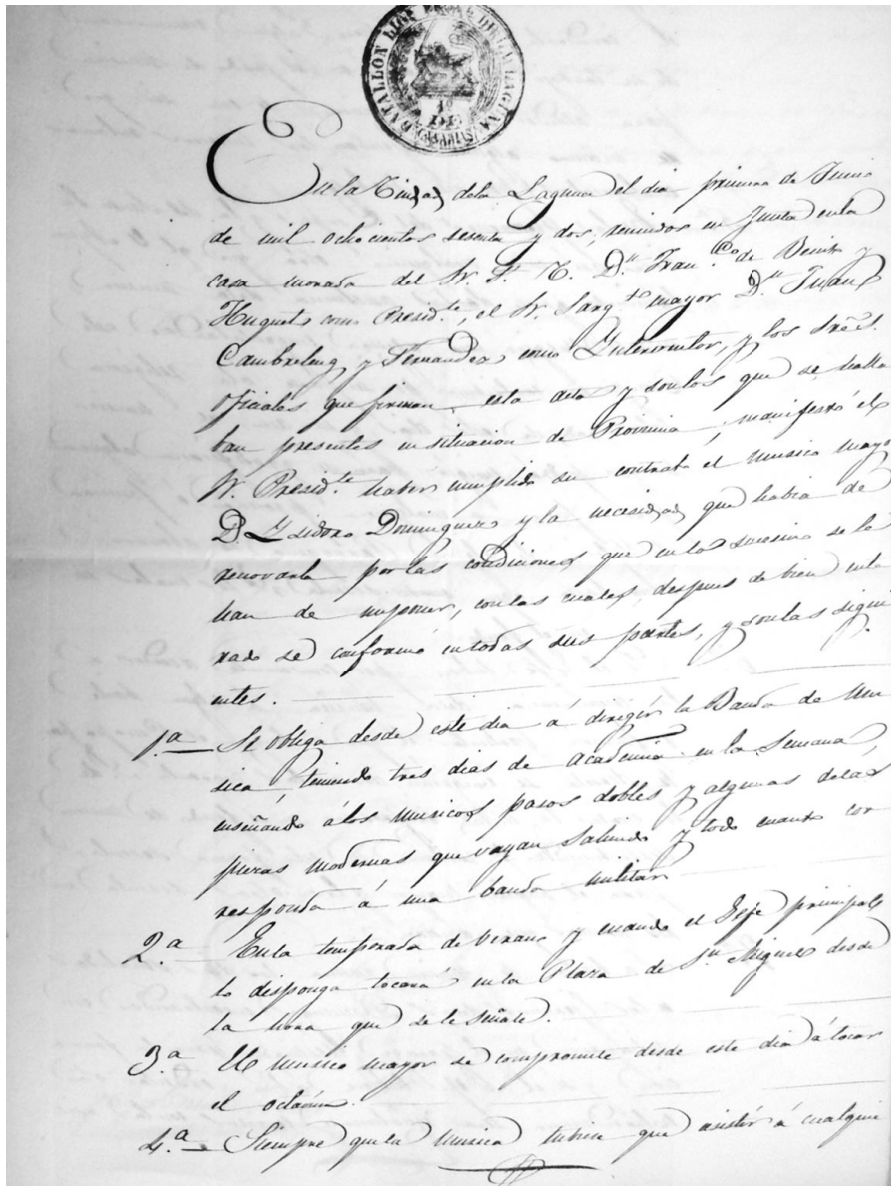 BATALLON LIG° PROV. DE LA LAGUNA
1°
DE
CANARIAS
En la Ciudad de la Laguna el dia primero de Junio
de mil ochocientos sesenta y dos, reunidos en Junta en la
casa morada del Sr. T. C. Dn. Franco. de Benitz y
Huguet como Presidte., el Sr. Sargto. mayor Dn. Juan
Cambreleng y Fernandez como Interventor, y los Sres.
oficiales que firman esta acta y son los que se halla
ban presentes en situacion de Provincia; manifestó el
Sr. Presidte. haber cumplido su contrata el musico mayor
D Ysidoro Dominguez y la necesidad que habia de
renovarla por las condiciones que en lo sucesivo se le
han de imponer, con las cuales, despues de bien ente
rado se conformó en todas sus partes, y son las sigui
entes.
1.a Se obliga desde este dia á dirigir la Banda de Mu
sica, teniendo tres dias de academia en la Semana,
enseñando á los musicos pasos dobles y algunas de las
piezas modernas que vayan saliendo y todo cuanto cor
responda á una banda militar
2.a En la temporada de verano y cuando el Jefe principal
lo disponga tocará en la Plaza de Sn. Miguel desde
la hora que se le señale.
3.a El musico mayor se compromete desde este dia á tocar
el octavin.
4.a Siempre que la musica tubiese que asistir á cualqui